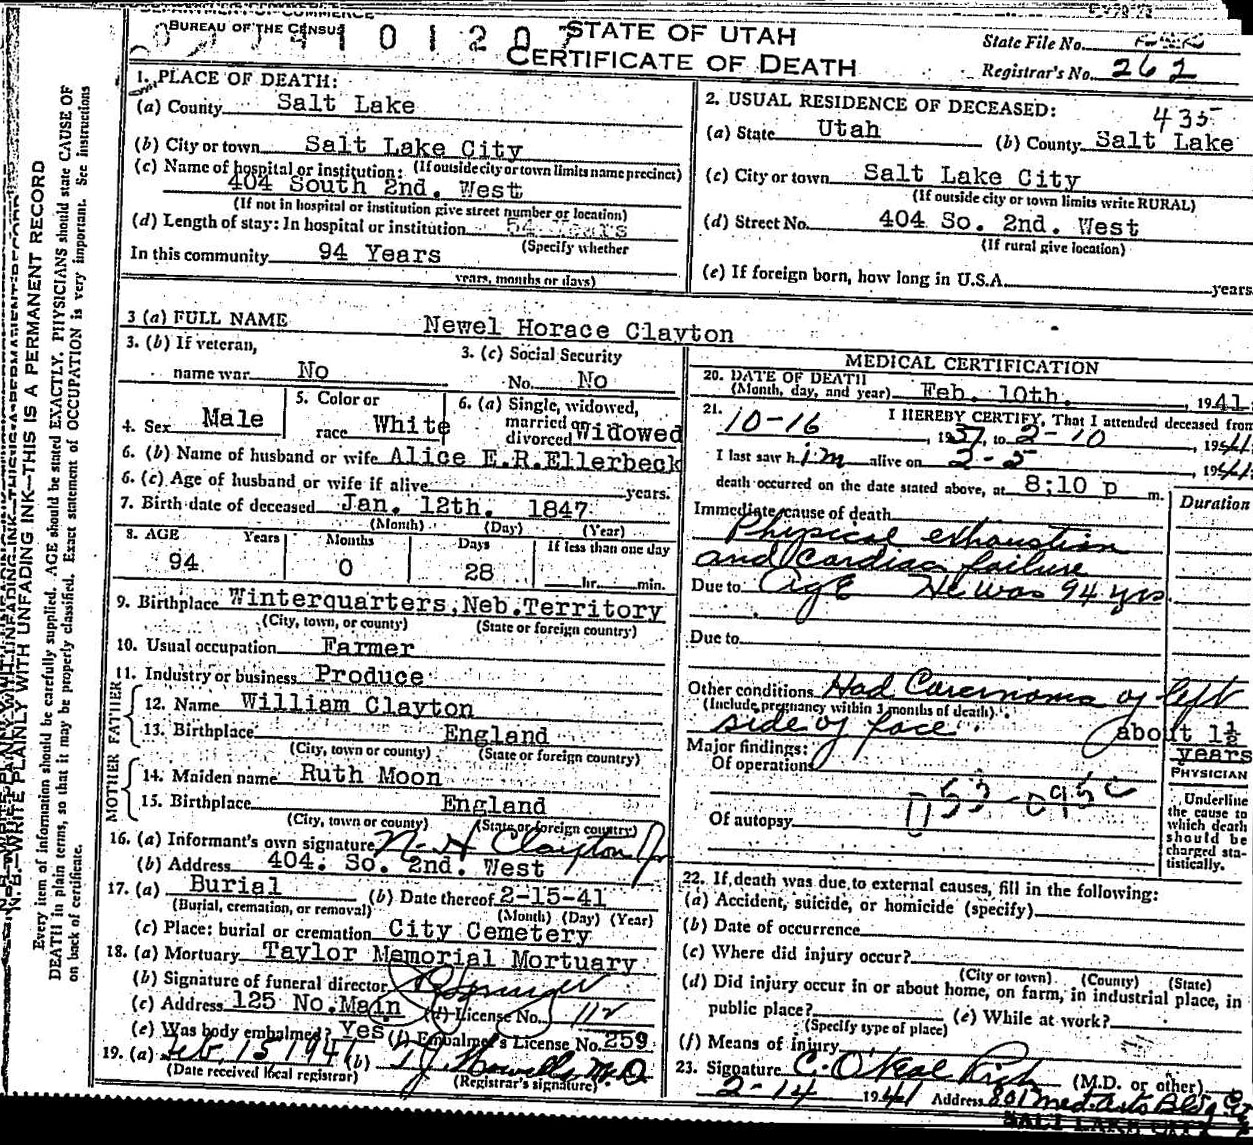 DEPARTMENT OF COMMERCE
BUREAU OF THE CENSUS
STATE OF UTAH
CERTIFICATE OF DEATH
State File No.
Registrar's No. 262
N.B.—WRITE PLAINLY WITH UNFADING INK—THIS IS A PERMANENT RECORD
Every item of information should be carefully supplied. AGE should be stated EXACTLY. PHYSICIANS should state CAUSE OF
DEATH in plain terms, so that it may be properly classified. Exact statement of OCCUPATION is very important. See instructions
on back of certificate.
1. PLACE OF DEATH:
(a) County Salt Lake
(b) City or town Salt Lake City
(If outside city or town limits name precinct)
(c) Name of hospital or institution:
404 South 2nd. West
(If not in hospital or institution give street number or location)
(d) Length of stay: In hospital or institution 54 Years
(Specify whether
In this community 94 Years
years, months or days)
2. USUAL RESIDENCE OF DECEASED:
435
(a) State Utah (b) County Salt Lake
(c) City or town Salt Lake City
(If outside city or town limits write RURAL)
(d) Street No. 404 So. 2nd. West
(If rural give location)
(e) If foreign born, how long in U.S.A. years
3 (a) FULL NAME Newel Horace Clayton
3. (b) If veteran,
name war No
3. (c) Social Security
No. No
4. Sex Male
5. Color or
race White
6. (a) Single, widowed,
married or
divorced Widowed
6. (b) Name of husband or wife Alice E.R.Ellerbeck
6. (c) Age of husband or wife if alive years.
7. Birth date of deceased Jan. 12th. 1847
(Month) (Day) (Year)
8. AGE Years Months Days If less than one day
94 0 28 hr. min.
9. Birthplace Winterquarters, Neb. Territory
(City, town, or county) (State or foreign country)
10. Usual occupation Farmer
11. Industry or business Produce
FATHER
12. Name William Clayton
13. Birthplace England
(City, town or county) (State or foreign country)
MOTHER
14. Maiden name Ruth Moon
15. Birthplace England
(City, town or county) (State or foreign country)
16. (a) Informant's own signature N. H Clayton Jr
(b) Address 404. So. 2nd. West
17. (a) Burial (b) Date thereof 2-15-41
(Burial, cremation, or removal) (Month) (Day) (Year)
(c) Place: burial or cremation City Cemetery
18. (a) Mortuary Taylor Memorial Mortuary
(b) Signature of funeral director
(c) Address 125 No. Main (d) License No. 112
(e) Was body embalmed? Yes (f) Embalmer's License No. 259
19. (a) Feb, 15 1941 (b) M.D.
(Date received local registrar) (Registrar's signature)
MEDICAL CERTIFICATION
20. DATE OF DEATH
(Month, day, and year) Feb. 10th. 1941
21. I HEREBY CERTIFY, That I attended deceased from
10-16, 1937, to 2-10, 1941.
I last saw him alive on 2-5 1941.
death occurred on the date stated above, at 8:10 p m.
Duration
Immediate cause of death
Physical exhaustion
and cardiac failure
Due to Age He was 94 yrs.
Due to
Other conditions Had Carcinoma of left
(Include pregnancy within 3 months of death)
side of face. about 1½
years
Major findings:
Of operations
Of autopsy
PHYSICIAN
Underline
the cause to
which death
should be
charged sta-
tistically.
22. If death was due to external causes, fill in the following:
(a) Accident, suicide, or homicide (specify)
(b) Date of occurrence
(c) Where did injury occur?
(City or town) (County) (State)
(d) Did injury occur in or about home, on farm, in industrial place, in
public place? (e) While at work?
(Specify type of place)
(f) Means of injury
23. Signature C. O'Neal Rich (M.D. or other)
2-14 1941 Address 801 Med. Arts Bldg
SALT LAKE CITY